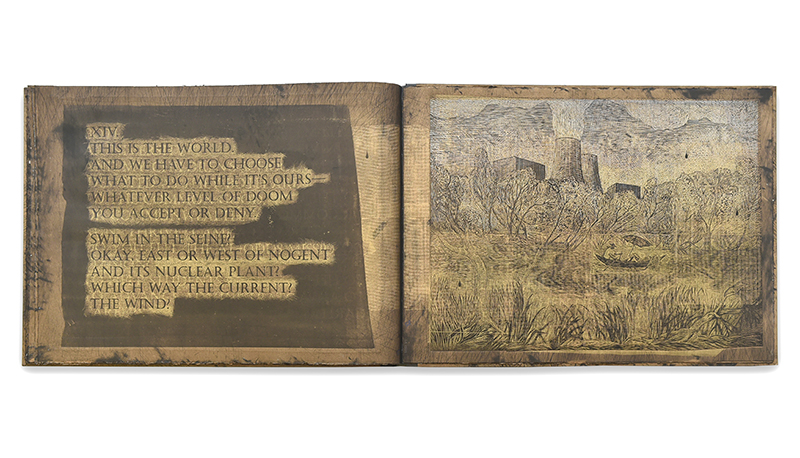 XIV.
THIS IS THE WORLD
AND WE HAVE TO CHOOSE
WHAT TO DO WHILE IT'S OURS—
WHATEVER LEVEL OF DOOM
YOU ACCEPT OR DENY.
SWIM IN THE SEINE?
OKAY, EAST OR WEST OF NOGENT
AND ITS NUCLEAR PLANT?
WHICH WAY THE CURRENT?
THE WIND?